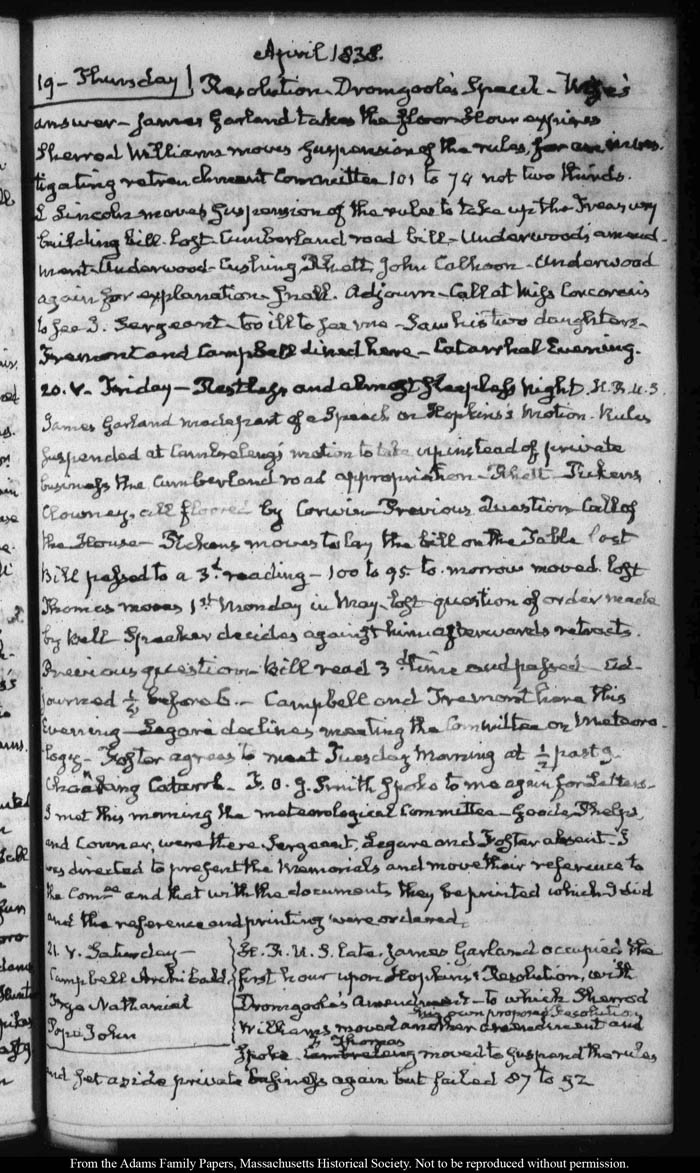 April 1838.
19 - Thursday | Resolution - Dromgoole's Speech - Wise's
answer - James Garland takes the floor - Hour expires
Sherrod Williams moves suspension of the rules, for an inves-
tigating retrenchment Committee 101 to 74 not two thirds.
L Lincoln moves suspension of the rules to take up the Treasury
building bill. lost - Cumberland road bill - Underwood's amend-
ment - Underwood - Cushing Rhett, John Calhoon - Underwood
again for explanation - Snell. Adjourn - Call at Miss Corcoran's
to see J. Sergeant - too ill to see me - Saw his two daughters -
Fremont and Campbell dined here - Catarrhal Evening.
20. V. Friday - Restless and almost sleepless Night. H.R.U.S.
James Garland made part of a Speech on Hopkins's Motion. Rules
suspended at Cambreleng's motion to take up instead of private
business the Cumberland road appropriation - Rhett - Pickens
Clowney, all floored by Corwin - Previous Question - Call of
the House - Pickens moves to lay the bill on the Table lost
Bill passed to a 3d. reading - 100 to 95. to-morrow moved. lost
Thomas moves 1st Monday in May - lost question of order made
by Bell Speaker decides against him afterwards retracts.
Previous question - Bill read 3d time and passed - Ad-
journed ¼ before 6. - Campbell and Fremont here this
Evening - Legaré declines meeting the Committee on Meteoro-
logy - Foster agrees to meet Tuesday Morning at ½ past 9.
Choaking Catarrh - F. O. J. Smith spoke to me again for Letters -
I met this morning the meteorological Committee - Goode, Phelps,
and Connor, were there Sergeant, Legare and Foster absent - I
was directed to present the Memorials and move their reference to
the Comee and that with the documents they be printed which I did
and the reference and printing were ordered.
21. V. Saturday -
Campbell Archibald
Frye Nathaniel
Pope John
H. R. U. S. late. James Garland occupied the
first hour upon Hopkins's Resolution, with
Dromgoole's Amendment - to which Sherrod
his own proposed Resolution
Williams moved another amendment and
Spoke - Thomas
Cambreleng moved to suspend the rules
and set aside private business again but failed 87 to 52